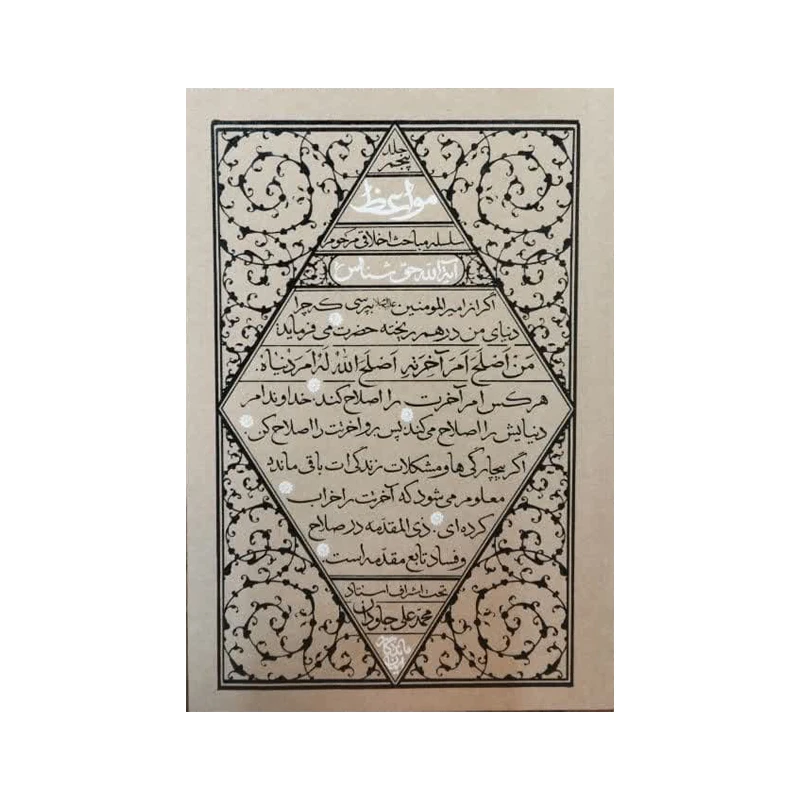 جلد
پنجم
مواعظ
سلسله مباحث اخلاقی مرحوم
آیة الله حق شناس
اگر از امیرالمومنین علیه‌السلام بپرسی که چرا
دنیای من درهم ریخته حضرت می فرماید:
مَنْ اَصْلَحَ اَمرَ آخرتهِ اَصْلَحَ اللهُ لَهُ امرَ دُنیاه.
هر کس امر آخرت را اصلاح کند، خداوند امر
دنیایش را اصلاح می کند، پس برو آخرتت را اصلاح کن.
اگر بیچارگی ها و مشکلات زندگی ات باقی ماند
معلوم می شود که آخرتت را خراب
کرده ای. ذی المقدّمه در صلاح
و فساد تابع مقدّمه است.
تحت اشراف استاد
محمد علی جاودان